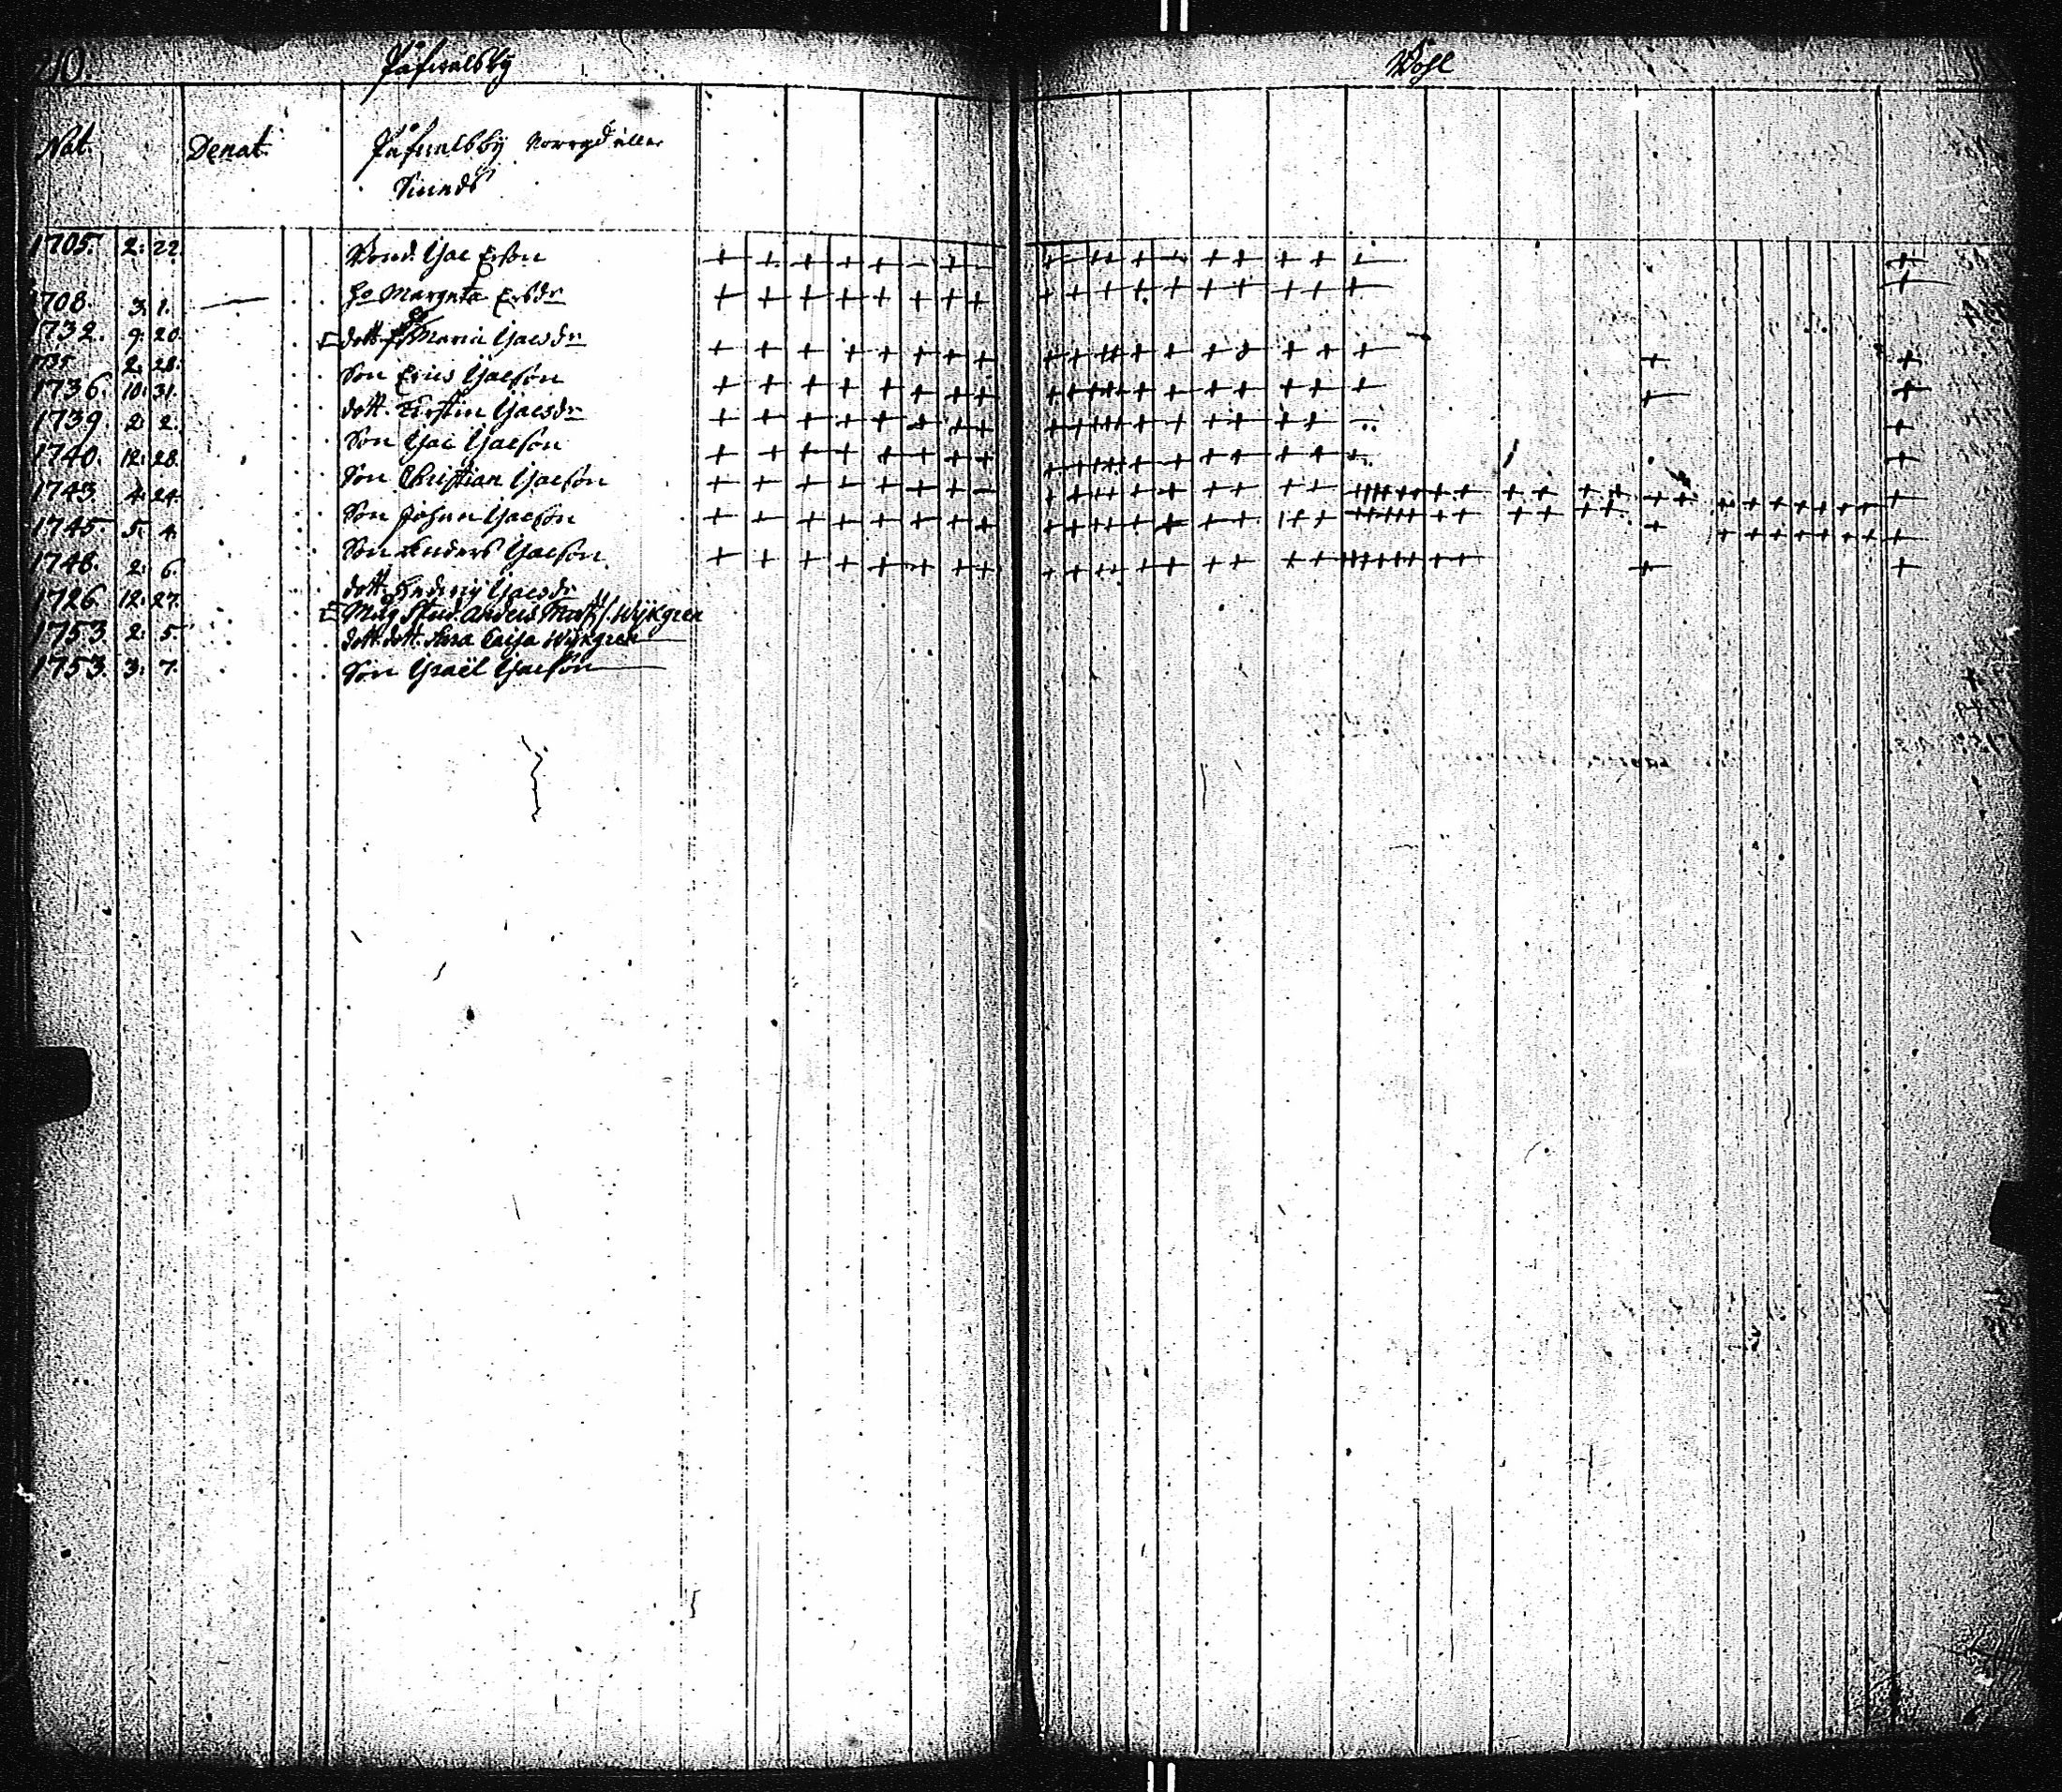 210. Påfwalsby
Wöhl
Nat. Denat. Påfwalsby Norrgd eller
Sunds
1705. 2: 22. Bond. Isac Ersson
1708. 3: 1. — ho Margreta Ersdr
1732. 9: 20. dott. Maria Isacsdr
1735. 2: 28. Son Erics Isacson
1736. 10: 31. dott. Kirstin Isacsdr
1739 2: 2. Son Isac Isacson
1740. 12: 28. Son Christian Isacson
1743. 4: 24. Son Johan Isacson
1745 5: 4. Son Anders Isacson
1748. 2: 6. dott. Hedwig Isacsdr
1726 12: 27. Måg Anders Matss. Wijkgren
1753 2: 5. dott. dott. Ana Caisa Wijkgren
1753. 3: 7. Son Israël Isacson